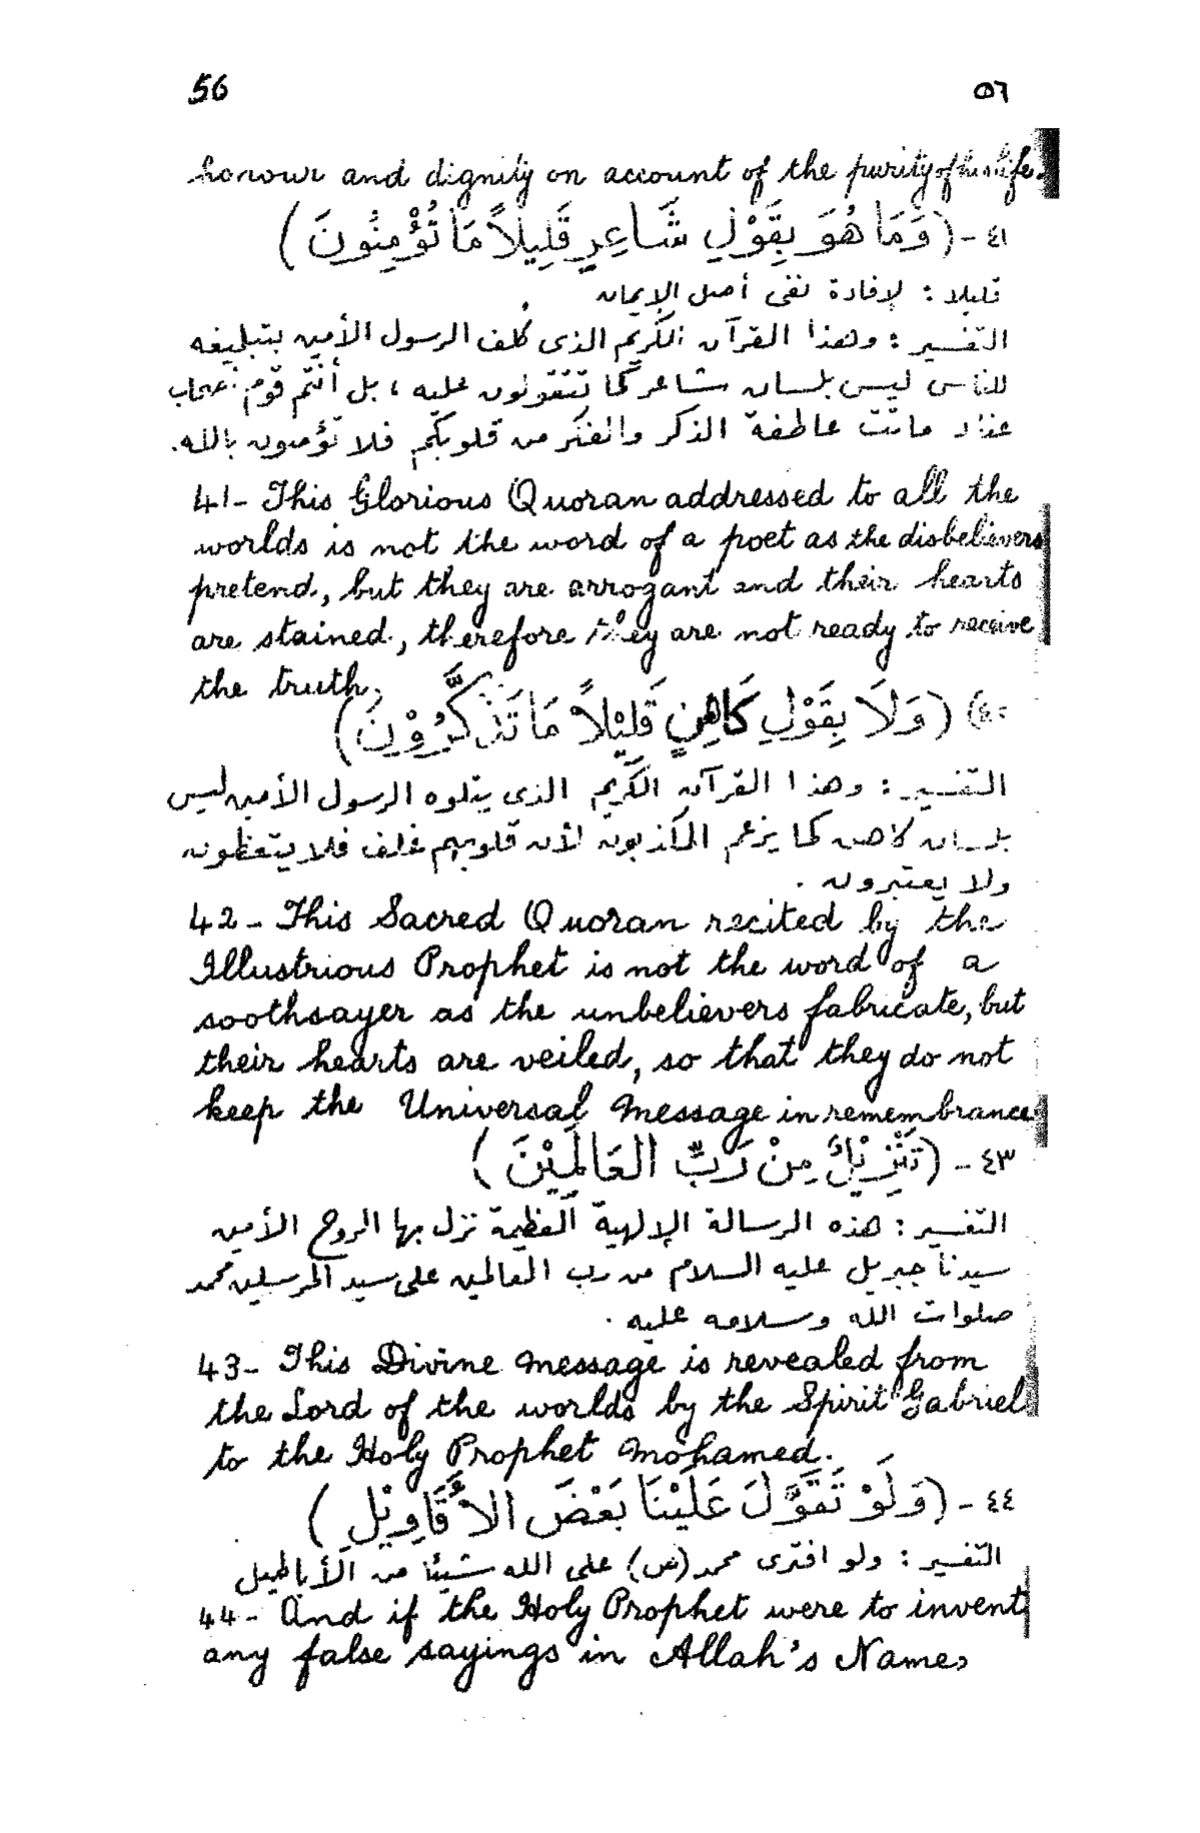 56 ٥٦
honour and dignity on account of the purity of his life.
٤١ - (وَمَا هُوَ بِقَوْلِ شَاعِرٍ قَلِيلاً مَا تُؤْمِنُونَ)
قليلا : لإفادة نفى أصل الإيمان
التفسير : وهذا القرآن الكريم الذى كلف الرسول الأمين بتبليغه
للناس ليس بلسان شاعر كما تتقولون عليه ، بل أنتم قوم أصحاب
عناد ماتت عاطفة الذكر والفكر من قلوبكم فلا تؤمنون بالله.
41- This Glorious Quoran addressed to all the
worlds is not the word of a poet as the disbelievers
pretend, but they are arrogant and their hearts
are stained, therefore they are not ready to receive
the truth.
(وَلَا بِقَوْلِ كَاهِنٍ قَلِيْلاً مَا تَذَكَّرُوْنَ)
التفسير : وهذا القرآن الكريم الذى يتلوه الرسول الأمين ليس
بلسان كاهن كما يزعم المكذبون لأن قلوبهم غلف فلا يتعظون
ولا يعتبرون .
42- This Sacred Quoran recited by the
Illustrious Prophet is not the word of a
soothsayer as the unbelievers fabricate, but
their hearts are veiled, so that they do not
keep the Universal Message in remembrance
٤٣ - (تَنْزِيْلٌ مِنْ رَبِّ العَالَمِيْنَ)
التفسير : هذه الرسالة الإلهية العظيمة نزل بها الروح الأمين
سيدنا جبريل عليه السلام من رب العالمين على سيد المرسلين محمد
صلوات الله وسلامه عليه .
43- This Divine Message is revealed from
the Lord of the worlds by the Spirit Gabriel
to the Holy Prophet Mohamed.
٤٤ - (وَلَوْ تَقَوَّلَ عَلَيْنَا بَعْضَ الأَقَاوِيْلِ)
التفسير : ولو افترى محمد (ص) على الله شيئا من الأباطيل
44- And if the Holy Prophet were to invent
any false sayings in Allah's Name,